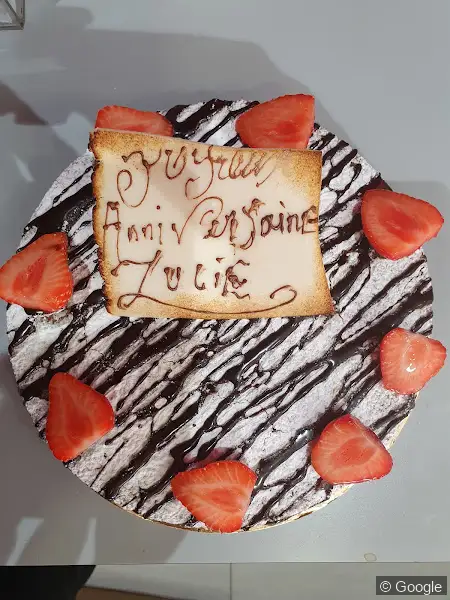 Joyeux
Anniversaire
Lucie
© Google